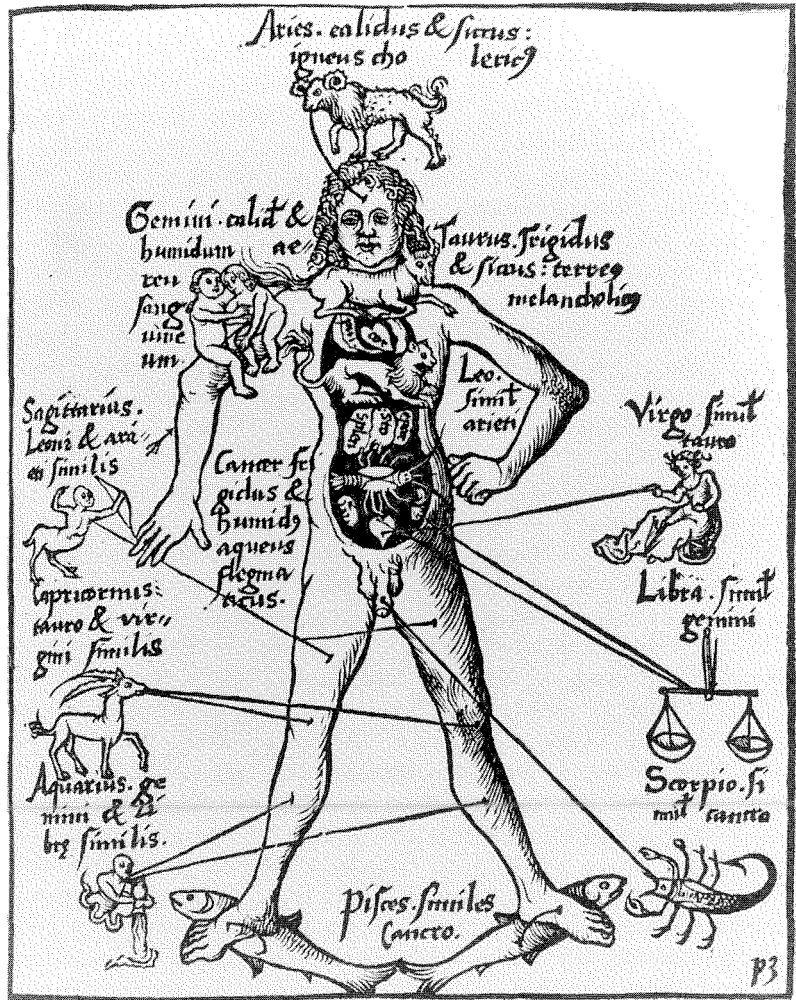 Aries. calidus & siccus:
igneus cho lericꝰ
Gemini. calid⁹ &
humidum ae-
reu
sang
uine
um.
Taurus. frigidus
& sicus: terreꝰ
melancholicꝰ
Leo.
simil
arieti
Sagittarius.
Leoni & ari-
eti similis
Cancer fri
gidus &
humidꝰ
aqueus
flegma
ticus.
Virgo simil
tauro
Capricornus:
tauro & vir-
gini similis
Libra. simil
gemini
Aquarius. ge
mini & li
brę similis.
Scorpio. si
mil cancro
Pisces. similes
Cancro.
p3